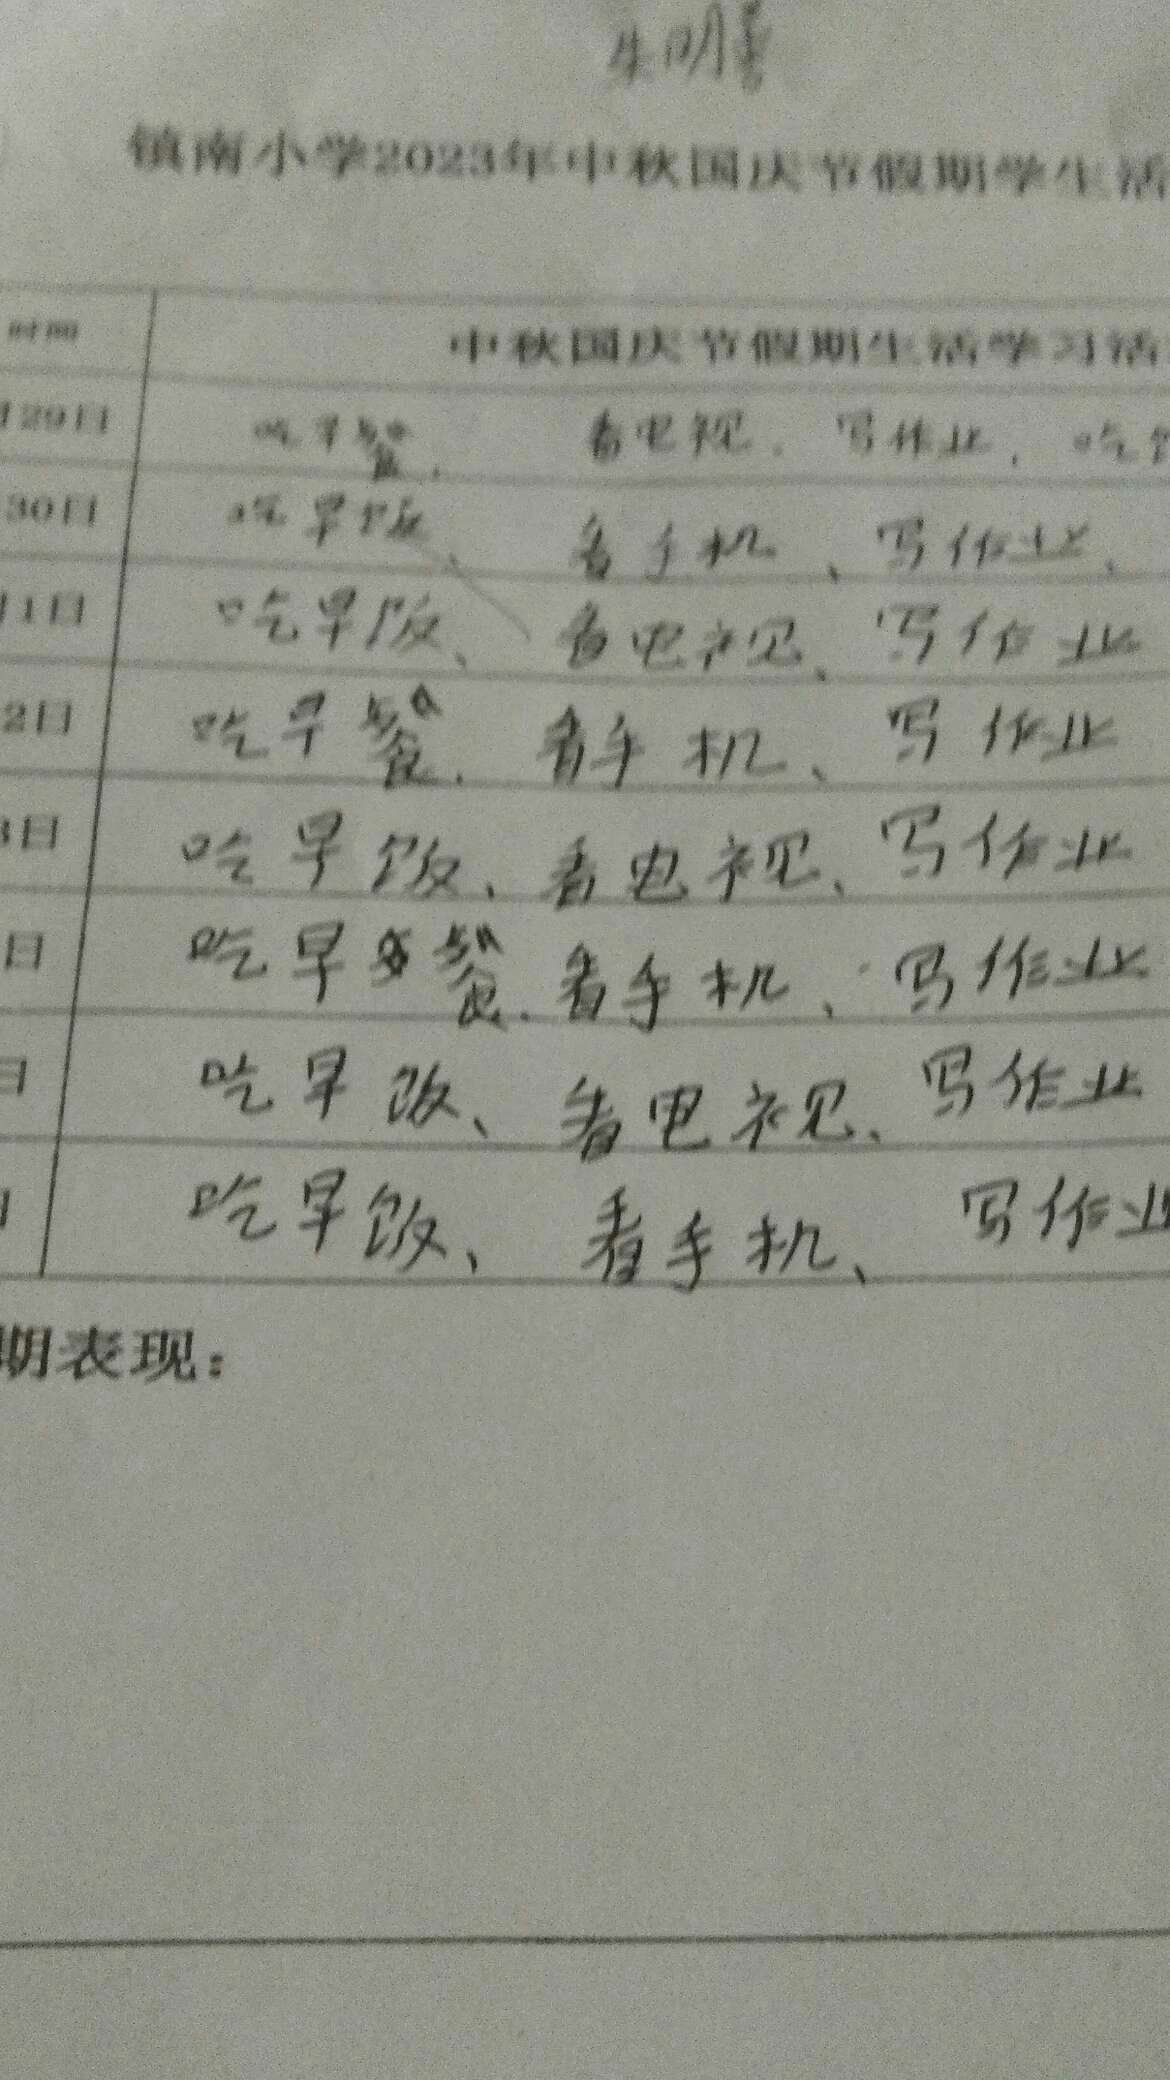 朱明善
镇南小学2023年中秋国庆节假期学生活
时间 中秋国庆节假期生活学习活
月29日 吃早餐、 看电视、写作业、吃
30日 吃早饭、 看手机、写作业、
月1日 吃早饭、看电视、写作业
2日 吃早餐、看手机、写作业
3日 吃早饭、看电视、写作业
日 吃早餐、看手机、写作业
日 吃早饭、看电视、写作业
日 吃早饭、看手机、写作业
期表现：